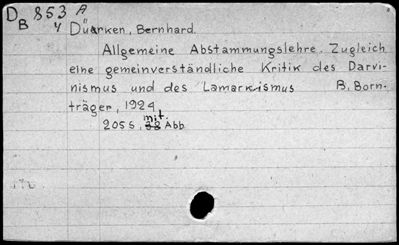 D 853 A
B y Düerken, Bernhard.
Allgemeine Abstammungslehre. Zugleich
eine gemeinverständliche Kritik des Darvi-
nismus und des Lamarkismus B. Born-
träger, 1924
mit.
205 S, 38 Abb
172